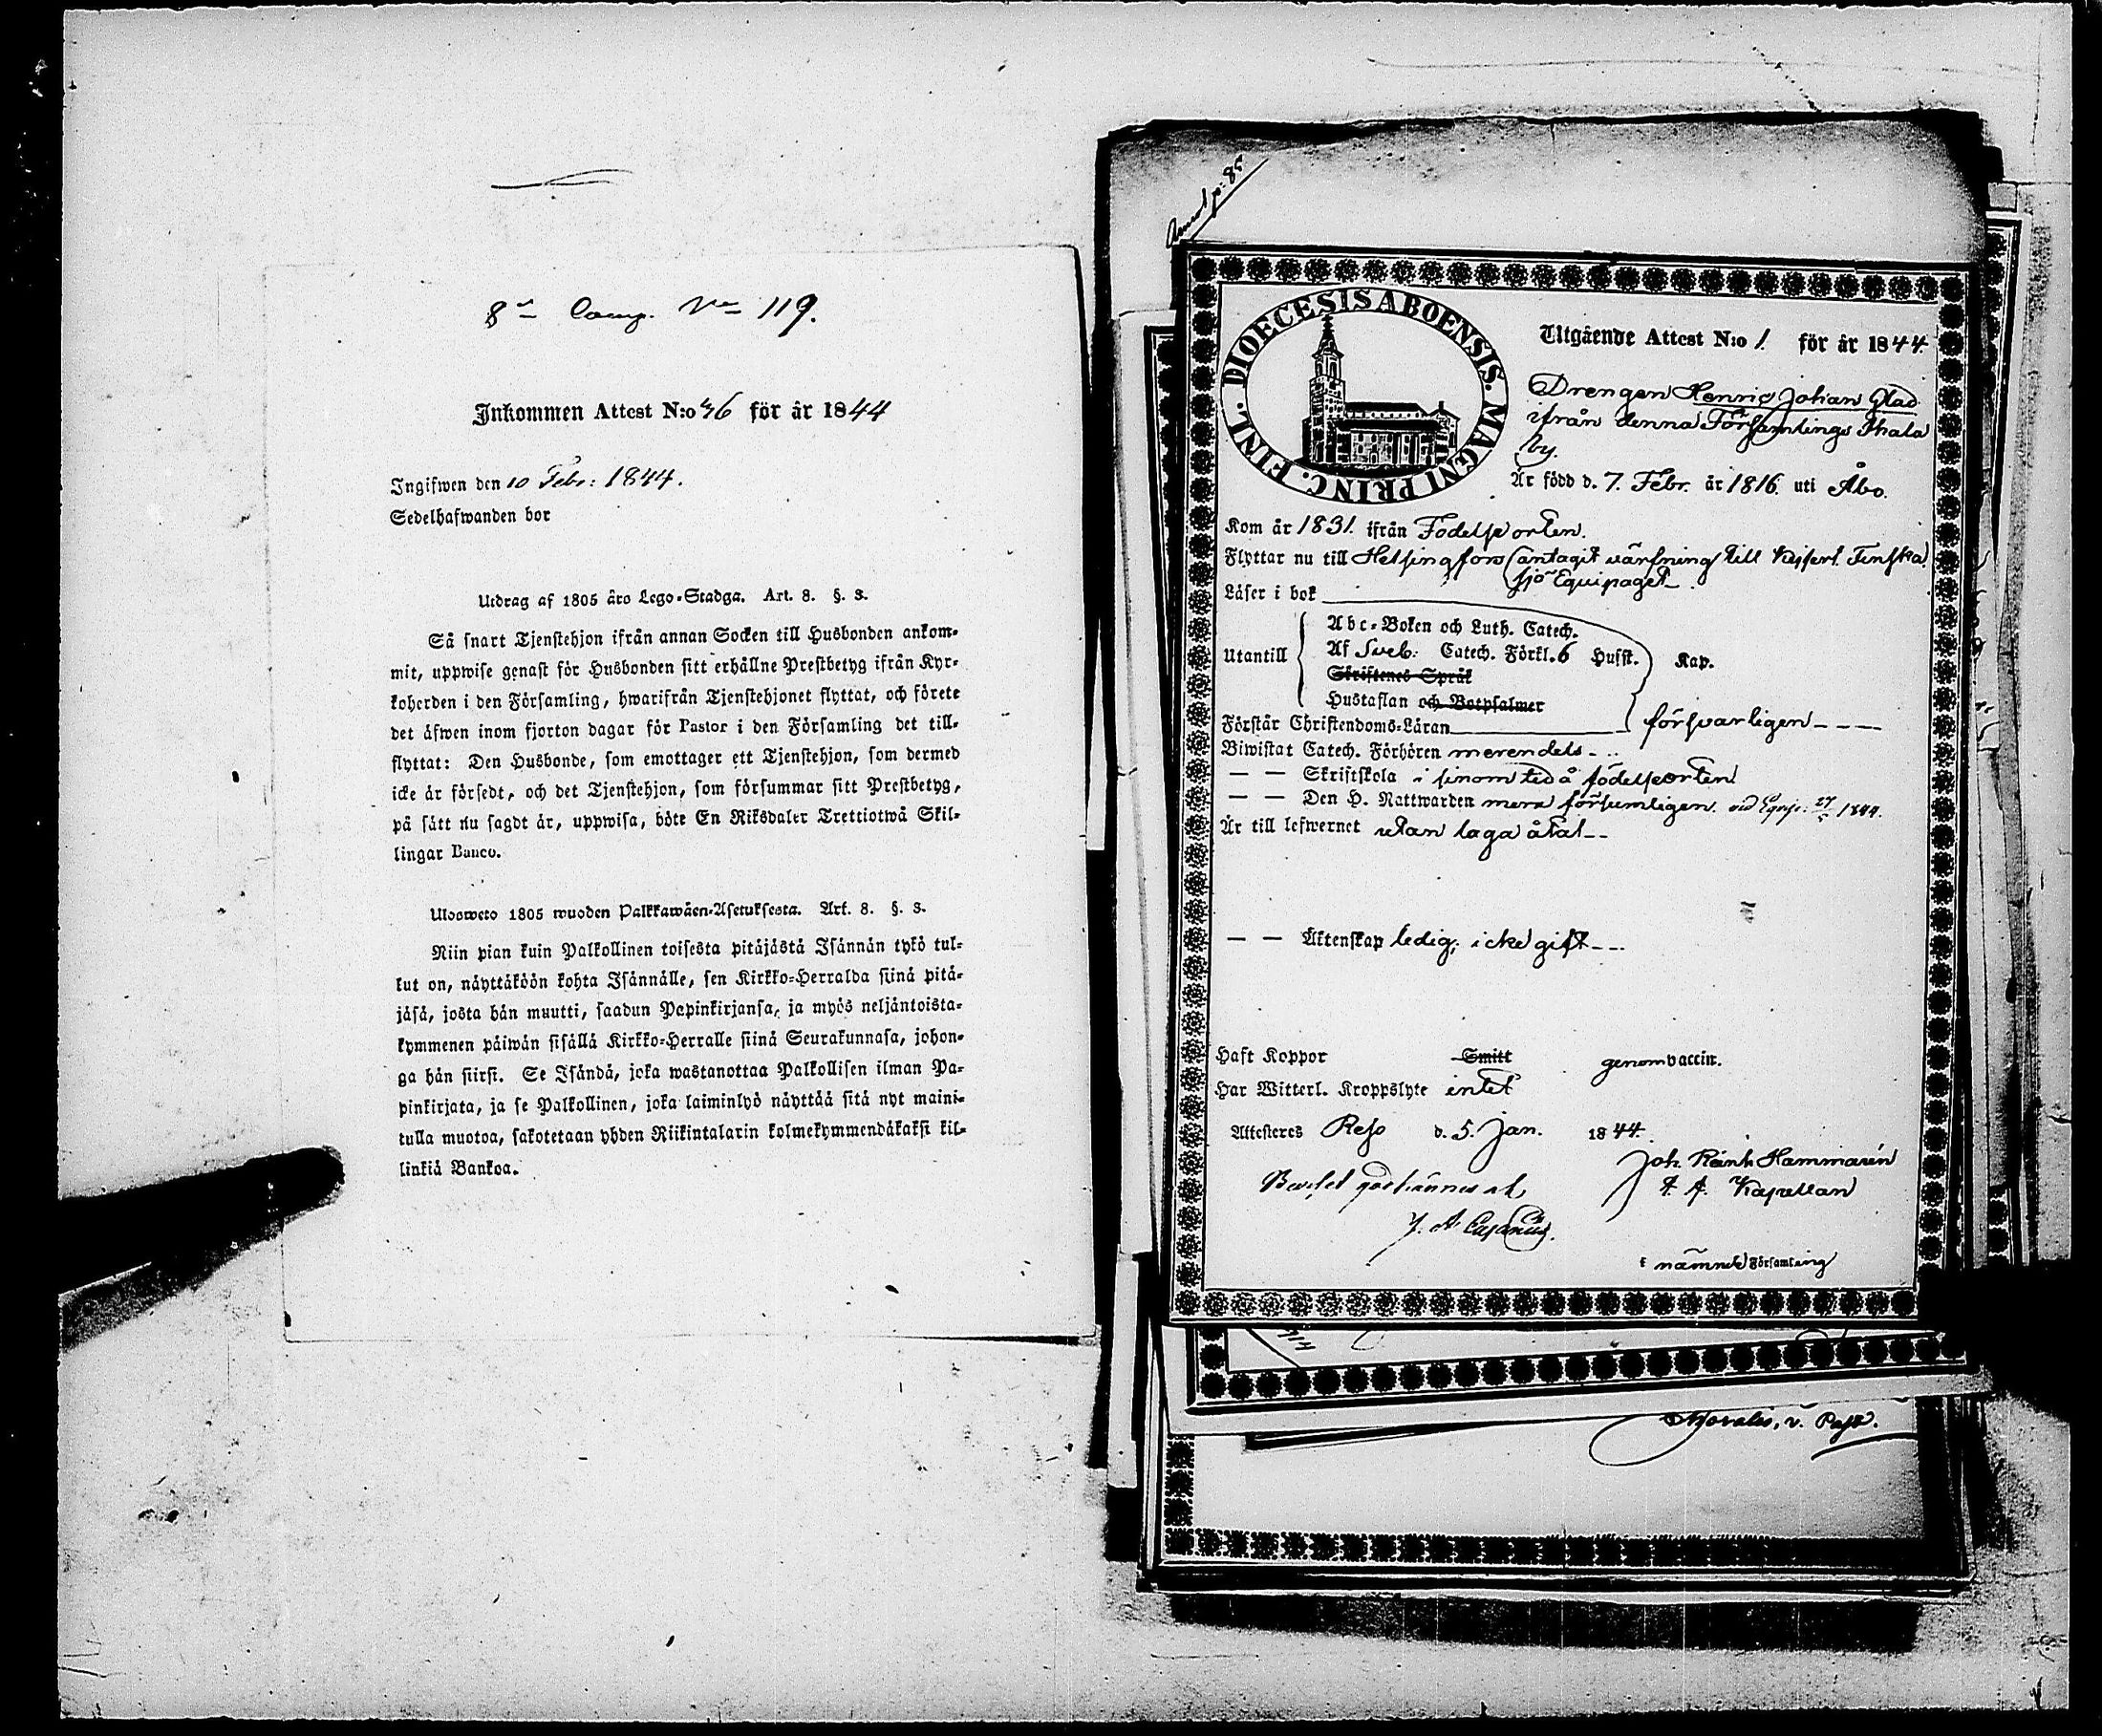 8de Comp. No 119.
Inkommen Attest N:o 46 för år 1844
Ingifwen den 10 Febr: 1844.
Sedelhafwanden bor
Utdrag af 1805 års Lego-Stadga. Art. 8. §. 3.
Så snart Tjenstehjon ifrån annan Socken till Husbonden ankom-
mit, uppwise genast för Husbonden sitt erhållne Prestbetyg ifrån Kyr-
koherden i den Församling, hwarifrån Tjenstehjonet flyttat, och förete
det äfwen inom fjorton dagar för Pastor i den Församling det till-
flyttat: Den Husbonde, som emottager ett Tjenstehjon, som dermed
icke är försedt, och det Tjenstehjon, som försummar sitt Prestbetyg,
på sätt nu sagdt är, uppwisa, böte En Riksdaler Trettiotwå Skil-
lingar Banco.
Ulosweto 1805 wuoden Palkkawäen-Asetuksesta. Art. 8. §. 3.
Niin pian kuin Palkollinen toisesta pitäjästä Isännän tykö tul-
kut on, näyttäköön kohta Isännälle, sen Kirkko-Herralda siinä pitä-
jäsä, josta hän muutti, saadun Papinkirjansa, ja myös neljäntoista-
kymmenen päiwän sisällä Kirkko-Herralle siinä Seurakunnasa, johon-
ga hän siirsi. Se Isändä, joka wastanottaa Palkollisen ilman Pa-
pinkirjata, ja se Palkollinen, joka laiminlyö näyttää sitä nyt maini-
tulla muotoa, sakotetaan yhden Riikintalarin kolmekymmendäkaksi kil-
linkiä Bankoa.
p: 85
DIOECESIS ABOENSIS. MAGNI PRINC. FINL.
Utgående Attest N:o 1. för år 1844.
Drengen Henric Johan Glad
ifrån denna Församlings Ihala
by.
Är född d. 7. Febr. år 1816. uti Åbo.
Kom år 1831. ifrån Födelseorten.
Flyttar nu till Helsingfors (antagit värfning till Kejserl. Finska
sjö Equipaget.
Läser i bok
Abc-Boken och Luth. Catech.
Utantill Af Sveb: Catech. Förkl. 6 Hufst. Kap.
Skriftenes Språk
Hustaflan och Botpsalmer
Förstår Christendoms-Läran försvarligen
Biwistat Catech. Förhören merendels
— — Skriftskola i sinom tid å födelseorten
— — Den H. Nattwarden mera försumligen. vid Eqvip: 1844.
Är till lefwernet utan laga åtal
— — Äktenskap ledig, icke gift
Haft Koppor Smitt genom vaccin.
Har Witterl. Kroppslyte intet
Attesteres Reso d. 5. Jan. 1844.
Joh. Reinh Hammarén
Kapellan
J. A.
i nämnde Församling
v. Past.